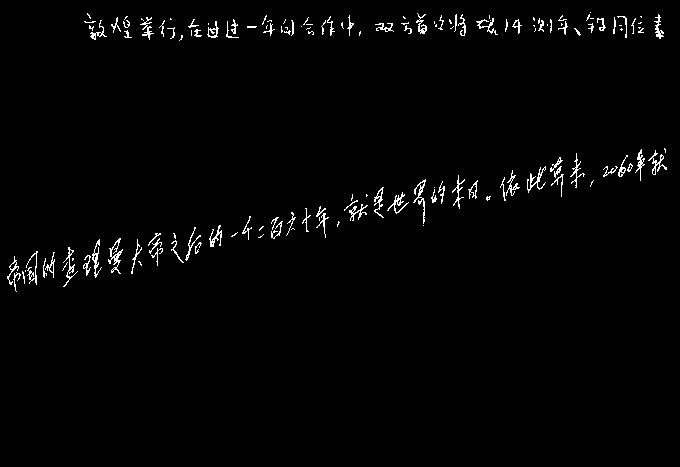 敦煌举行,在过过一年的合作中,双方首次将碳14测年、锶同位素
帝国的查理曼大帝之后的一千二百六十年,就是世界的末日。依此算来,2060年就